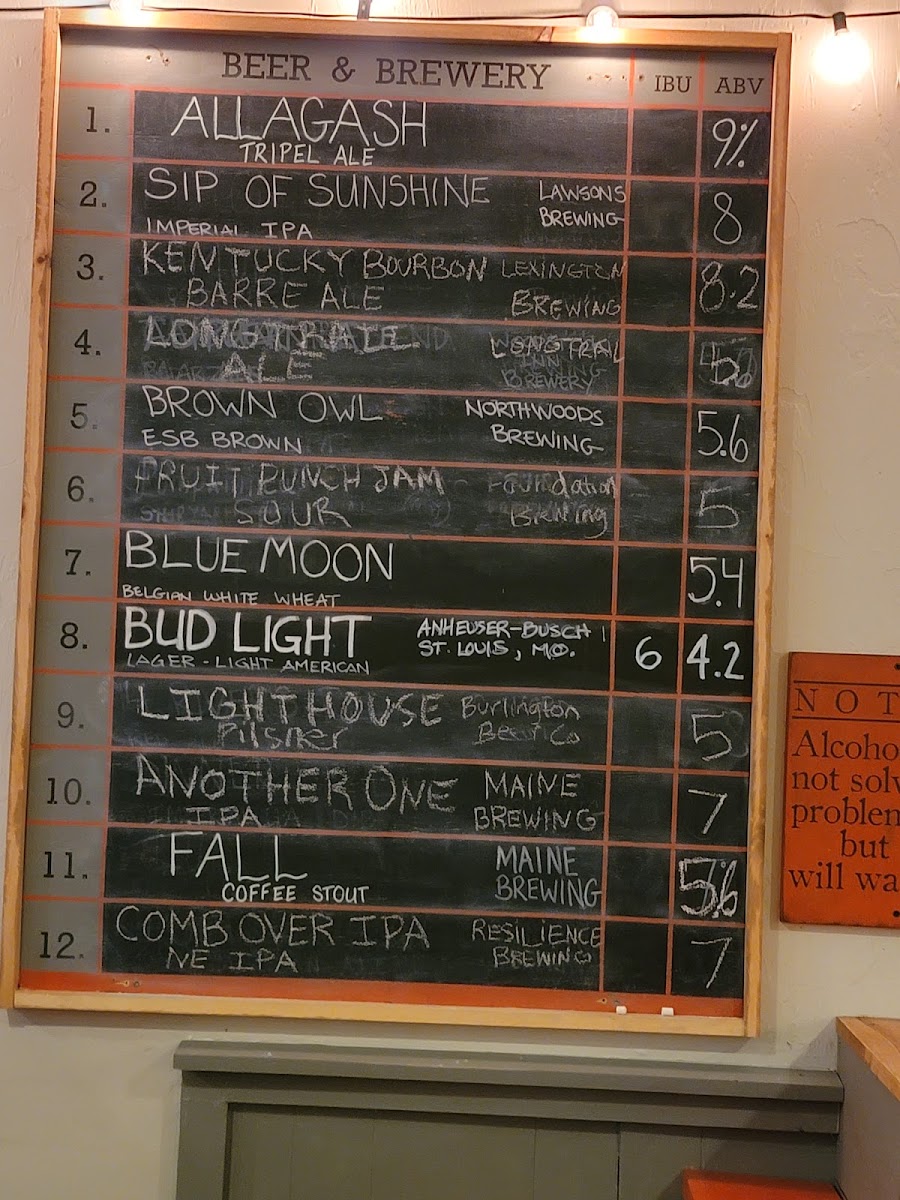 BEER & BREWERY IBU ABV
1. ALLAGASH 9%
TRIPEL ALE
2. SIP OF SUNSHINE LAWSONS 8
IMPERIAL IPA BREWING
3. KENTUCKY BOURBON LEXINGTON 8.2
BARREL ALE BREWING
4. LONG TRAIL LONGTRAIL
ALE BREWERY
5. BROWN OWL NORTHWOODS 5.6
ESB BROWN BREWING
6. FRUIT PUNCH JAM Foundation 5
SOUR Brewing
7. BLUE MOON 5.4
BELGIAN WHITE WHEAT
8. BUD LIGHT ANHEUSER-BUSCH 6 4.2
LAGER - LIGHT AMERICAN ST. LOUIS, MO.
9. LIGHTHOUSE Burlington 5
Pilsner Beer Co
10. ANOTHER ONE MAINE 7
IPA BREWING
11. FALL MAINE 5.6
COFFEE STOUT BREWING
12. COMB OVER IPA RESILIENCE 7
NE IPA BREWING
NOT
Alcoho
not solv
problem
but
will wa